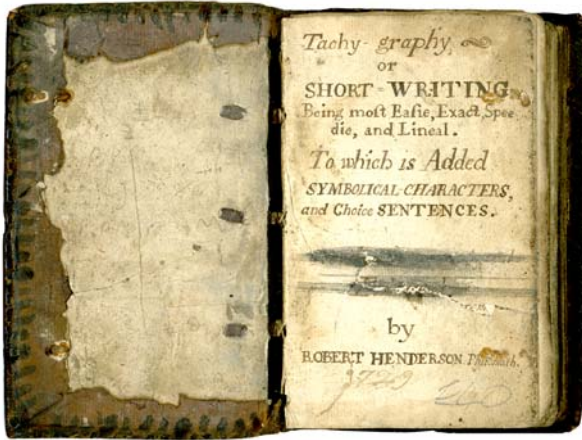 Tachy-graphy,
or
SHORT-WRITING
Being moſt Eaſie, Exact, Spee
die, and Lineal.
To which is Added
SYMBOLICAL CHARACTERS,
and Choice SENTENCES.
by
ROBERT HENDERSON